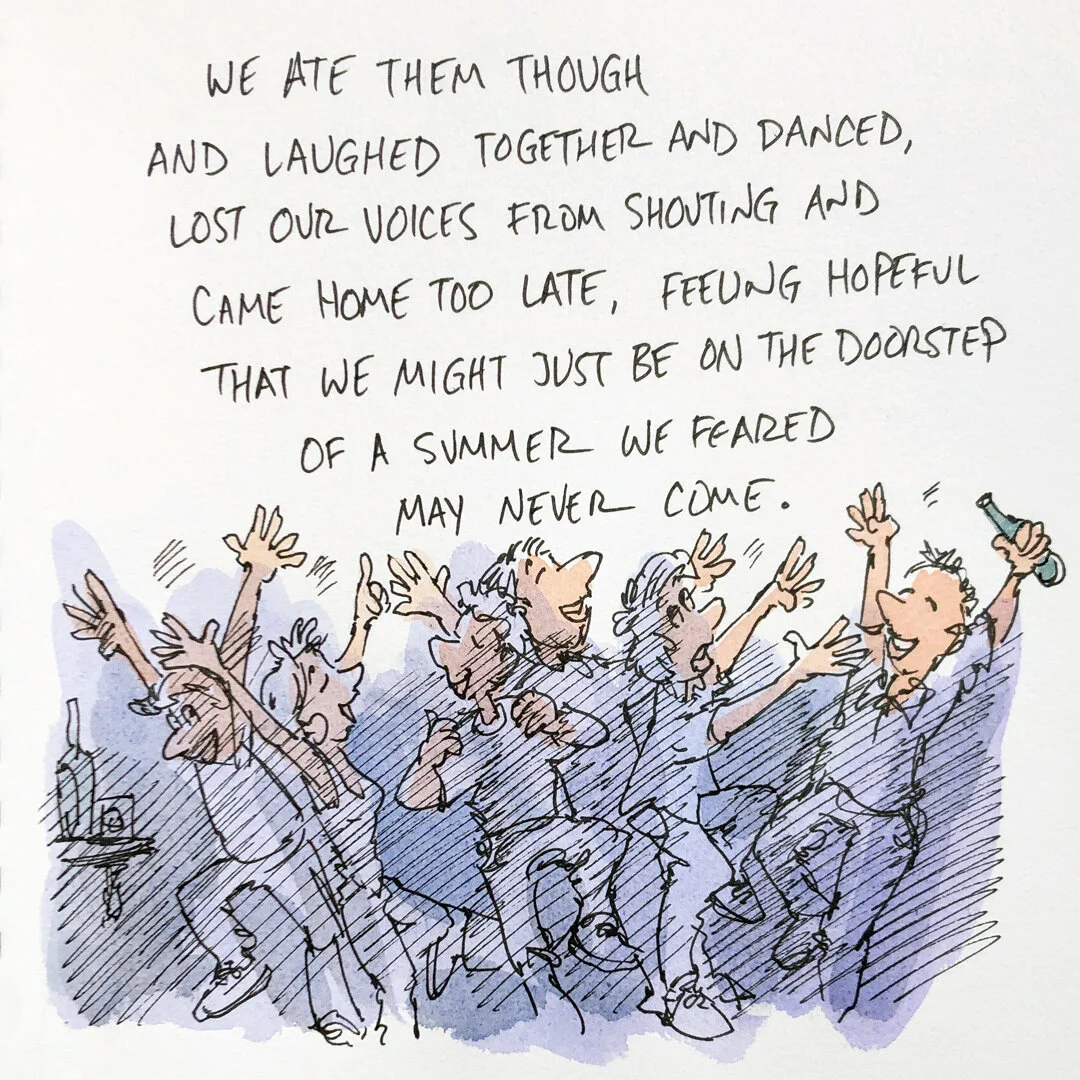 WE ATE THEM THOUGH
AND LAUGHED TOGETHER AND DANCED,
LOST OUR VOICES FROM SHOUTING AND
CAME HOME TOO LATE, FEELING HOPEFUL
THAT WE MIGHT JUST BE ON THE DOORSTEP
OF A SUMMER WE FEARED
MAY NEVER COME.